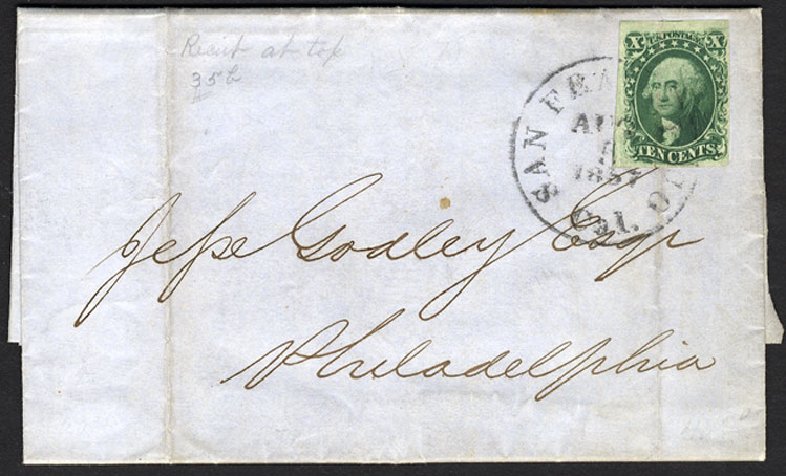 Recut at top
35
X U.S. POSTAGE X
TEN CENTS
SAN FRA CISCO
AUG
5
1857
Cal.
Jesse Godley Esqr
Philadelphia